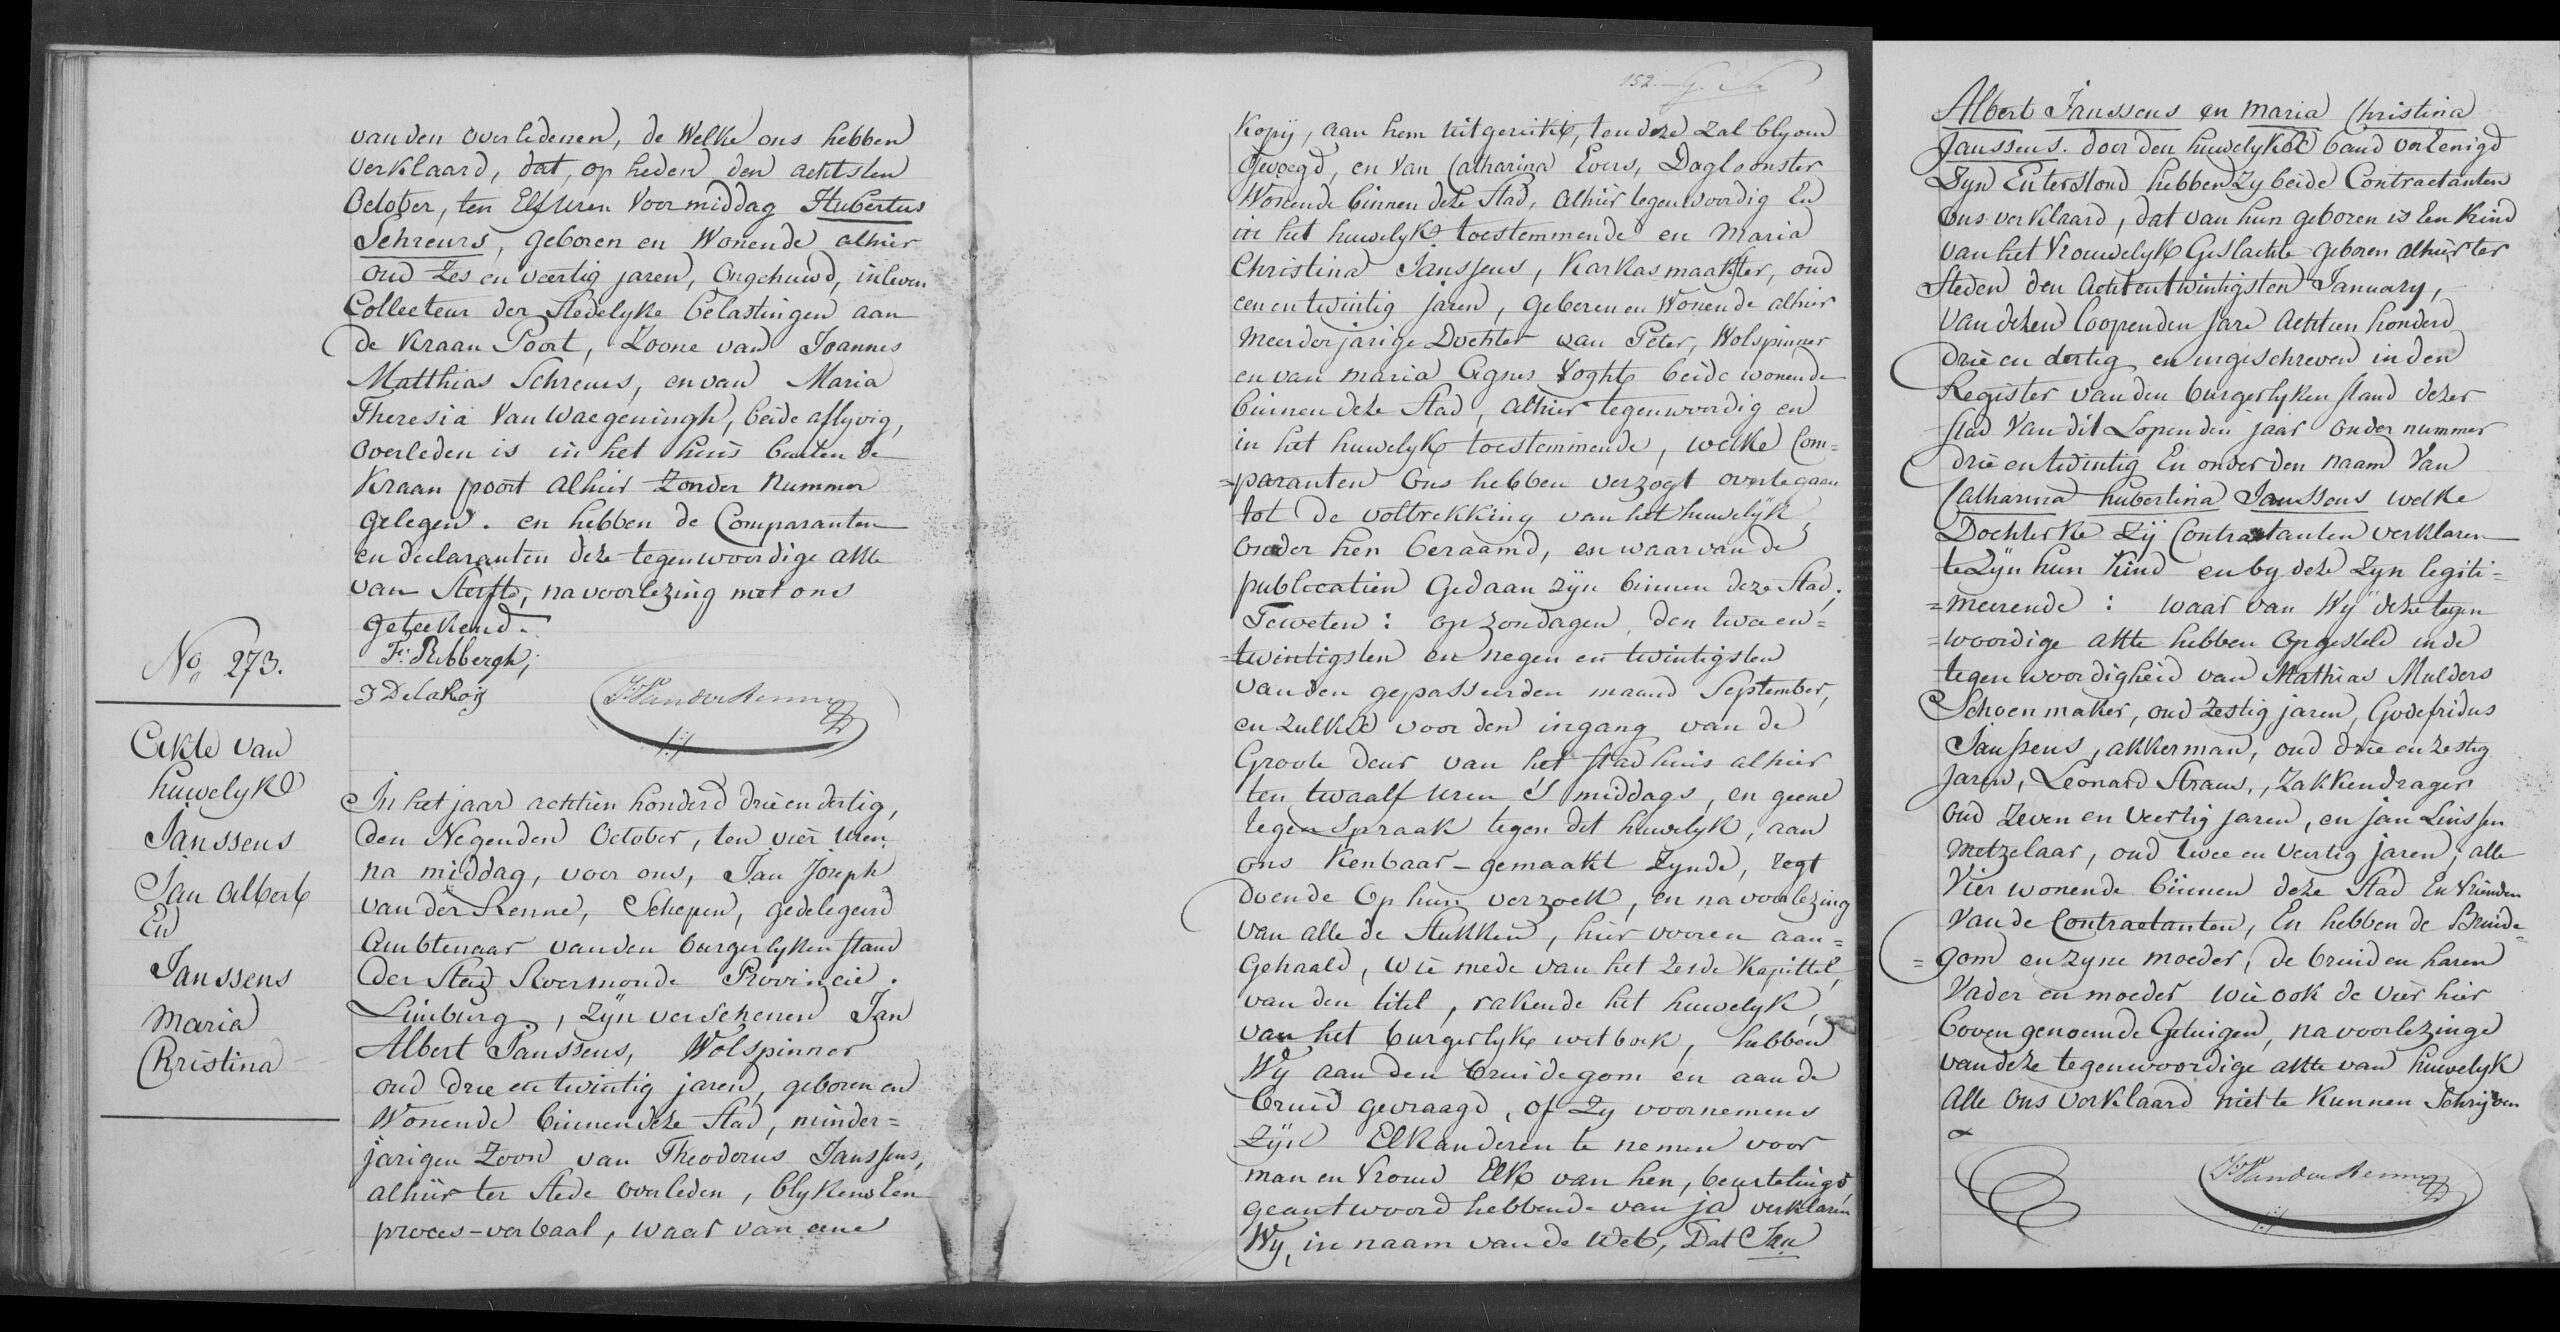 van den overledenen, de Welke ons hebben
verklaard, dat, op heden den achtsten
October, ten Elf uren Voormiddag Hubertus
Schreurs, geboren en Wonende alhier
oud Zes en veertig jaren, Ongehuwd, in leven
Collecteur der Stedelyke belastingen aan
de Kraan Poort, Zoone van Joannes
Matthias Schreurs, en van Maria
Theresia Van Waegeningh, beide aflyvig,
overleden is in het huis buiten de
Kraan poort alhier Zonder Nummer
gelegen. en hebben de Comparanten
en declaranten deze tegenwoordige akte
van Sterfte, na voorlezing met ons
geteekend.
F. Ribbergh,
J Delahoij
No 273.
Akte van
huwelyke
Janssens
Jan Albert
En
Janssens
Maria
Christina
In het jaar achtien honderd drie en dertig,
den Negenden October, ten vier uren
na middag, voor ons, Jan Joseph
van der Renne, Schepen, gedelegeerd
Ambtenaar van den burgerlyken stand
der Stad Roermonde Provincie
Limburg, Zÿn verschenen Jan
Albert Janssens, Wolspinner
oud drie en twintig jaren, geboren en
Wonende binnen deze Stad, minder=
jarigen Zoon van Theodorus Janssens,
alhier ter Stede overleden, blykens Een
proces-verbaal, waar van eene
152
Kopÿ, aan hem uitgereikt, ten deze zal blyven
gevoegd, en van Catharina Evers, Dagloonster
Wonende binnen deze Stad, alhier tegenwoordig En
in het huwelyk toestemmende en Maria
Christina Janssens, Karkasmaakster, oud
een en twintig jaren, geboren en Wonende alhier
meerderjarige Dochter van Peter, Wolspinner
en van Maria Agnes Voght beide wonende
binnen deze Stad, alhier tegenwoordig en
in het huwelyk toestemmende, welke Com=
=paranten Ons hebben verzogt over te gaan
tot de voltrekking van het huwelÿk
onder hen beraamd, en waar van de
publicatien Gedaan zÿn binnen deze Stad,
Teweten: op zondagen, den twee en=
=twintigsten en negen en twintigsten
van den gepasseerden maand September,
en zulke voor den ingang van de
Groote deur van het stadhuis alhier
ten twaalf uren 's middags, en geene
tegenspraak tegen dit huwelyk, aan
ons Kenbaar-gemaakt Zynde, regt
doende Op hun verzoek, en na voorlezing
van alle de Stukken, hier vooren aan=
Gehaald, wie mede van het zesde Kapittel,
van den titel, rakende het huwelyk,
van het burgerlyk wetboek, hebben
Wÿ aan den bruidegom en aan de
bruid gevraagd, of Zy voornemens
Zÿn Elkanderen te nemen voor
man en Vrouw Elk van hen, beurtelings
geantwoord hebbende van ja verklaren
Wy, in naam van de Wet, Dat Jan
Albert Janssens en Maria Christina
Janssens. door den huwelyksche band vereenigd
Zyn En terstond hebben Zy beide Contractanten
Ons verklaard, dat van hun geboren is Een Kind
van het Vrouwelyk Geslachte geboren alhier ter
Steden den Acht en twintigsten January,
Van dezen Loopenden Jare Achtien honderd
drie en dertig en ingeschreven in den
Register van den burgerlyken stand dezer
stad Van dit Lopenden jaar onder nummer
drie en twintig En onder den naam Van
Catharina hubertina Janssens welke
Dochterke Zÿ Contractanten verklaren
te Zÿn hun Kind en by deze Zyn legiti=
=meerende: waar van Wÿ deze tegen
=woordige akte hebben Opgesteld in de
tegenwoordigheid van Mathias Mulders
Schoenmaker, oud zestig jaren, Godefridus
Janssens, akkerman, oud drie en zestig
jaren, Leonard Straus, Zakkendrager
oud Zeven en veertig jaren, en jan Linssen
Metzelaar, oud twee en veertig jaren, alle
Vier wonende binnen deze Stad En Vrienden
Van de Contractanten, En hebben de Bruide=
=gom en zyne moeder, de bruid en haren
Vader en moeder wie ook de vier hier
boven genoemde Getuigen, na voorlezinge
van deze tegenwoordige akte van huwelyk
Alle Ons verklaard niet te Kunnen Schrijven